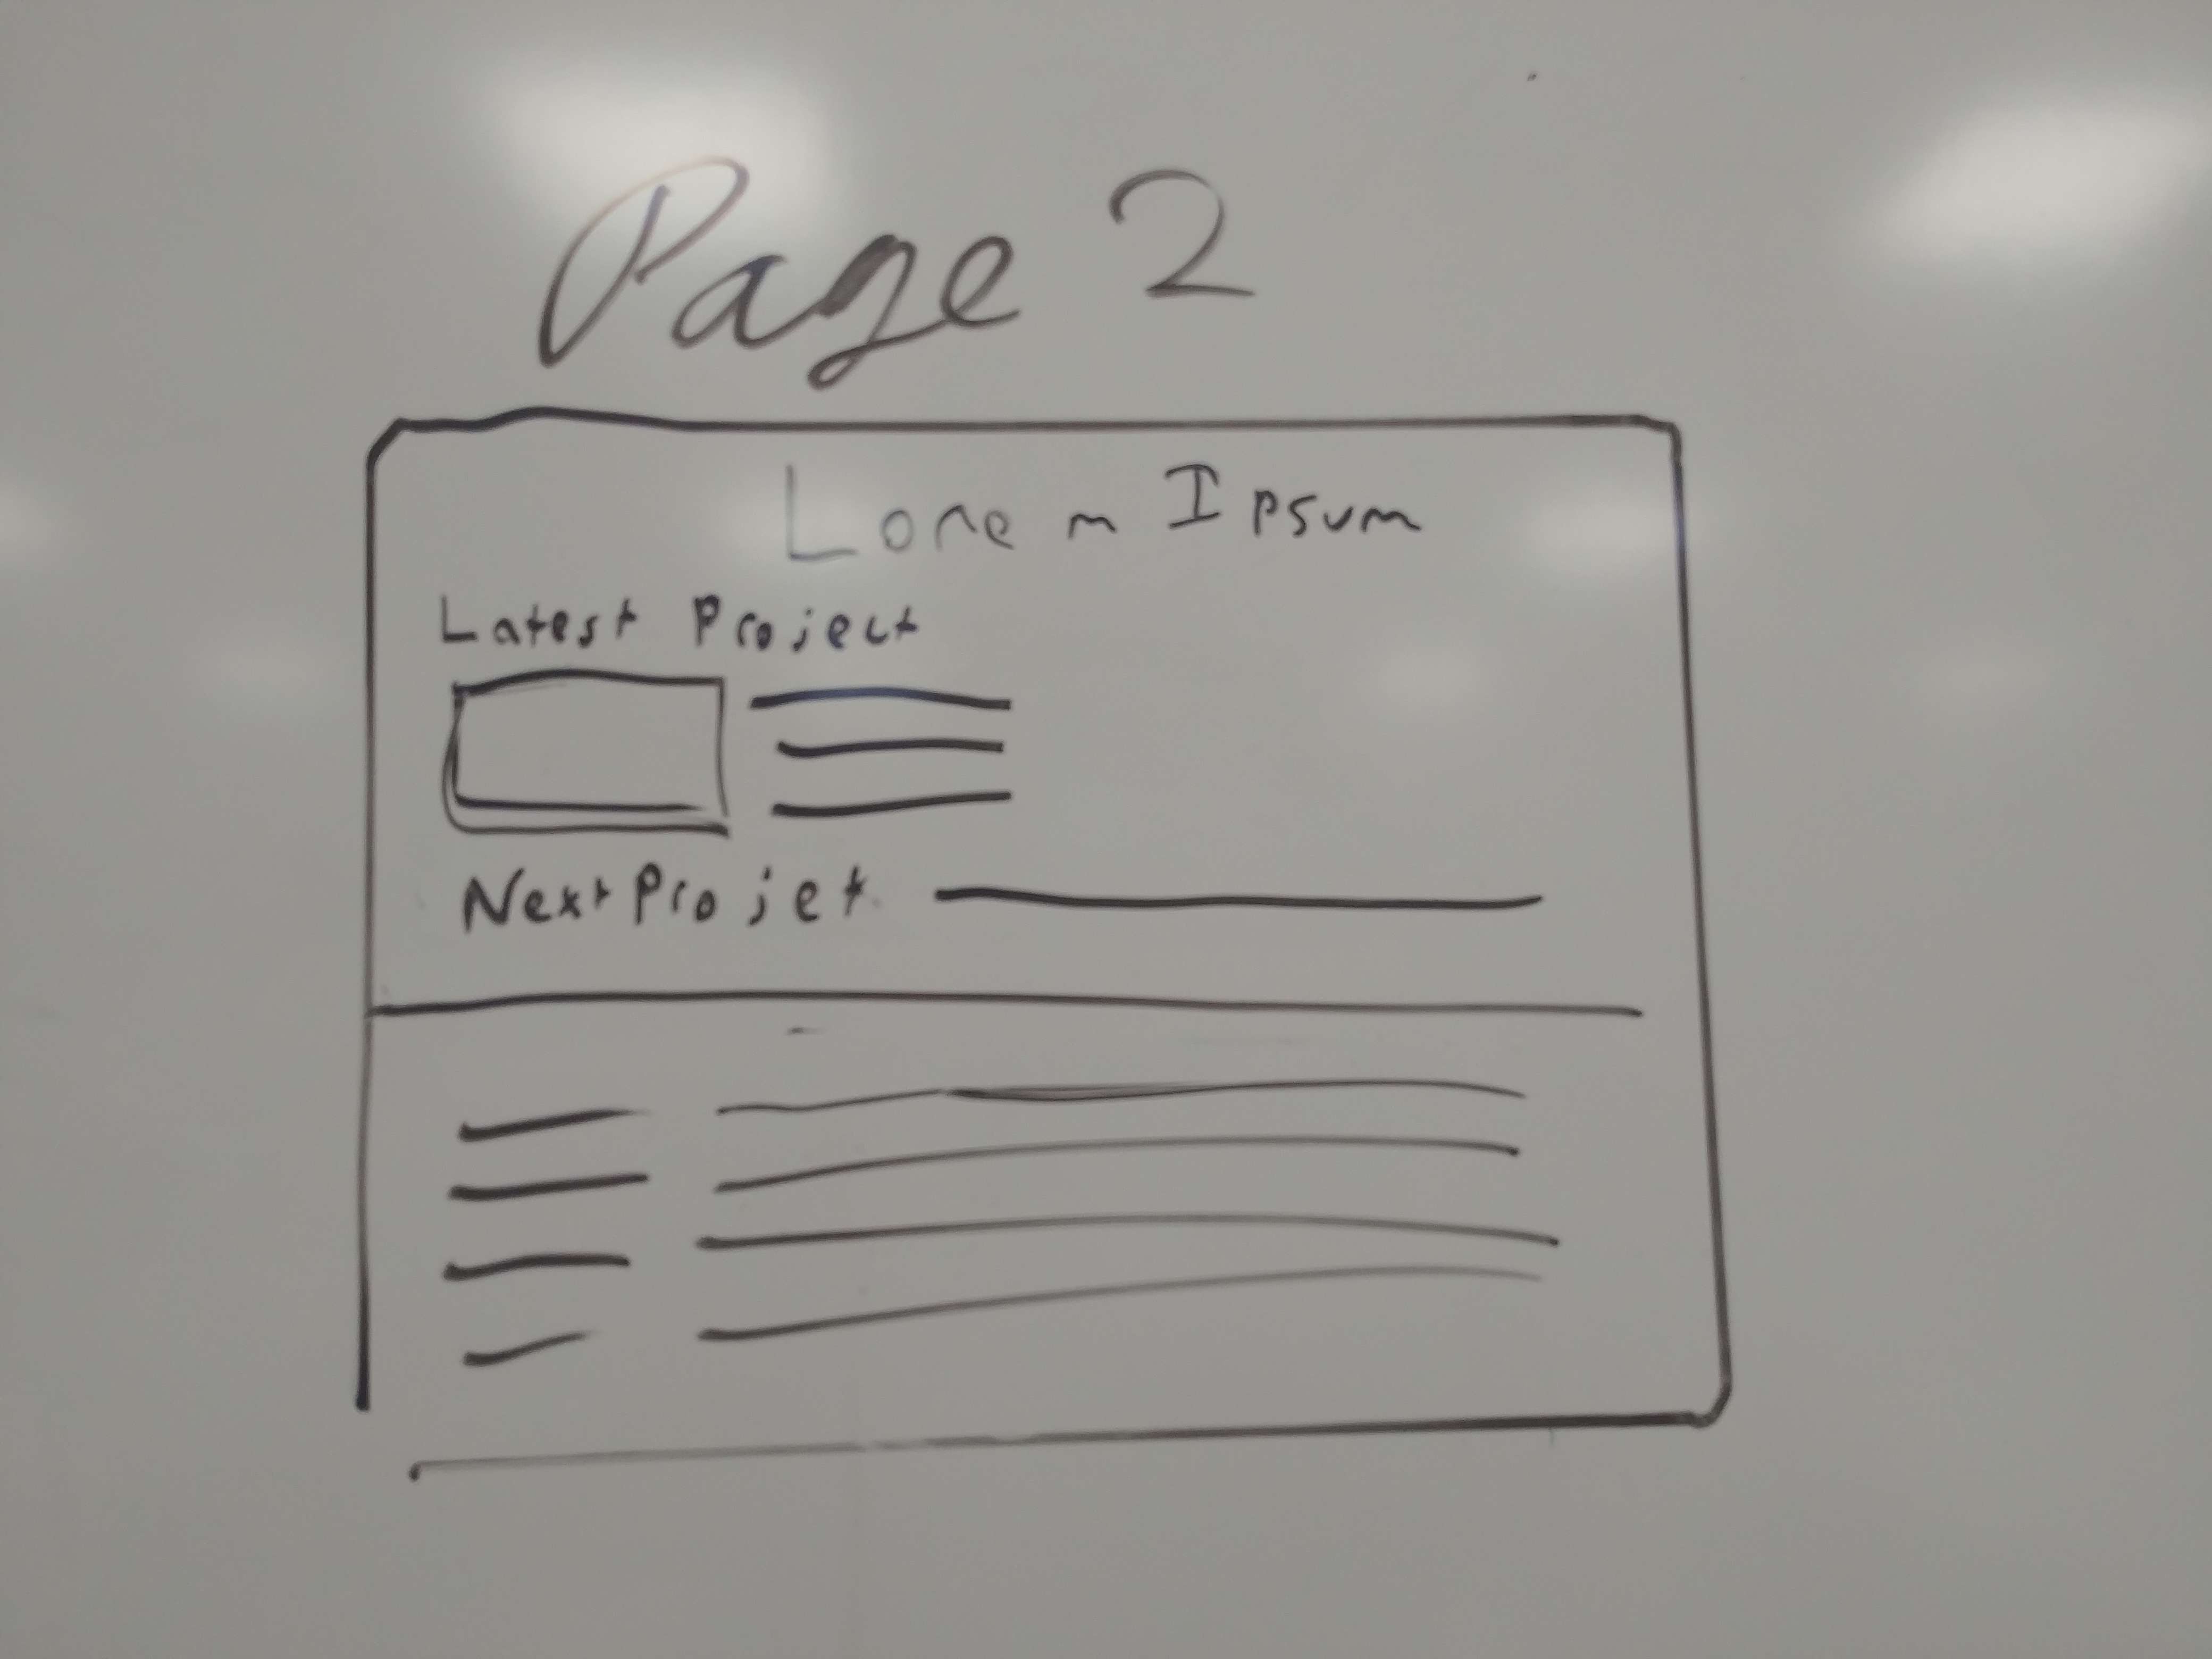 Page 2
Lorem Ipsum
Latest Project
Next Projet